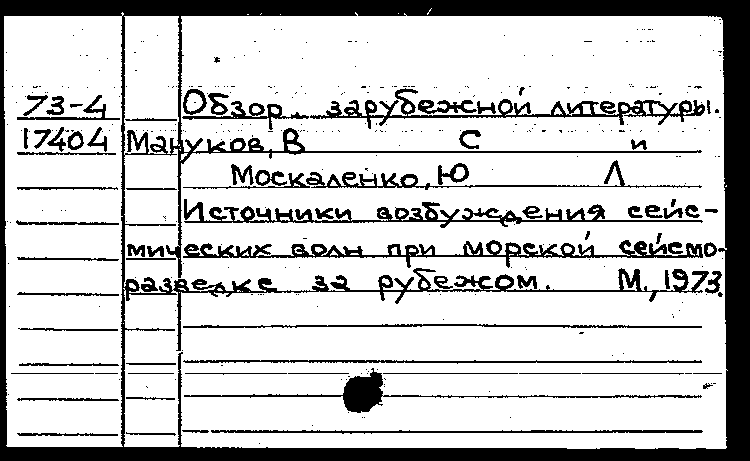 73-4 Обзор зарубежной литературы.
17404 Мануков, В С и
Москаленко, Ю Л
Источники возбуждения сейс-
мических волн при морской сейсмо-
разведке за рубежом. М., 1973.